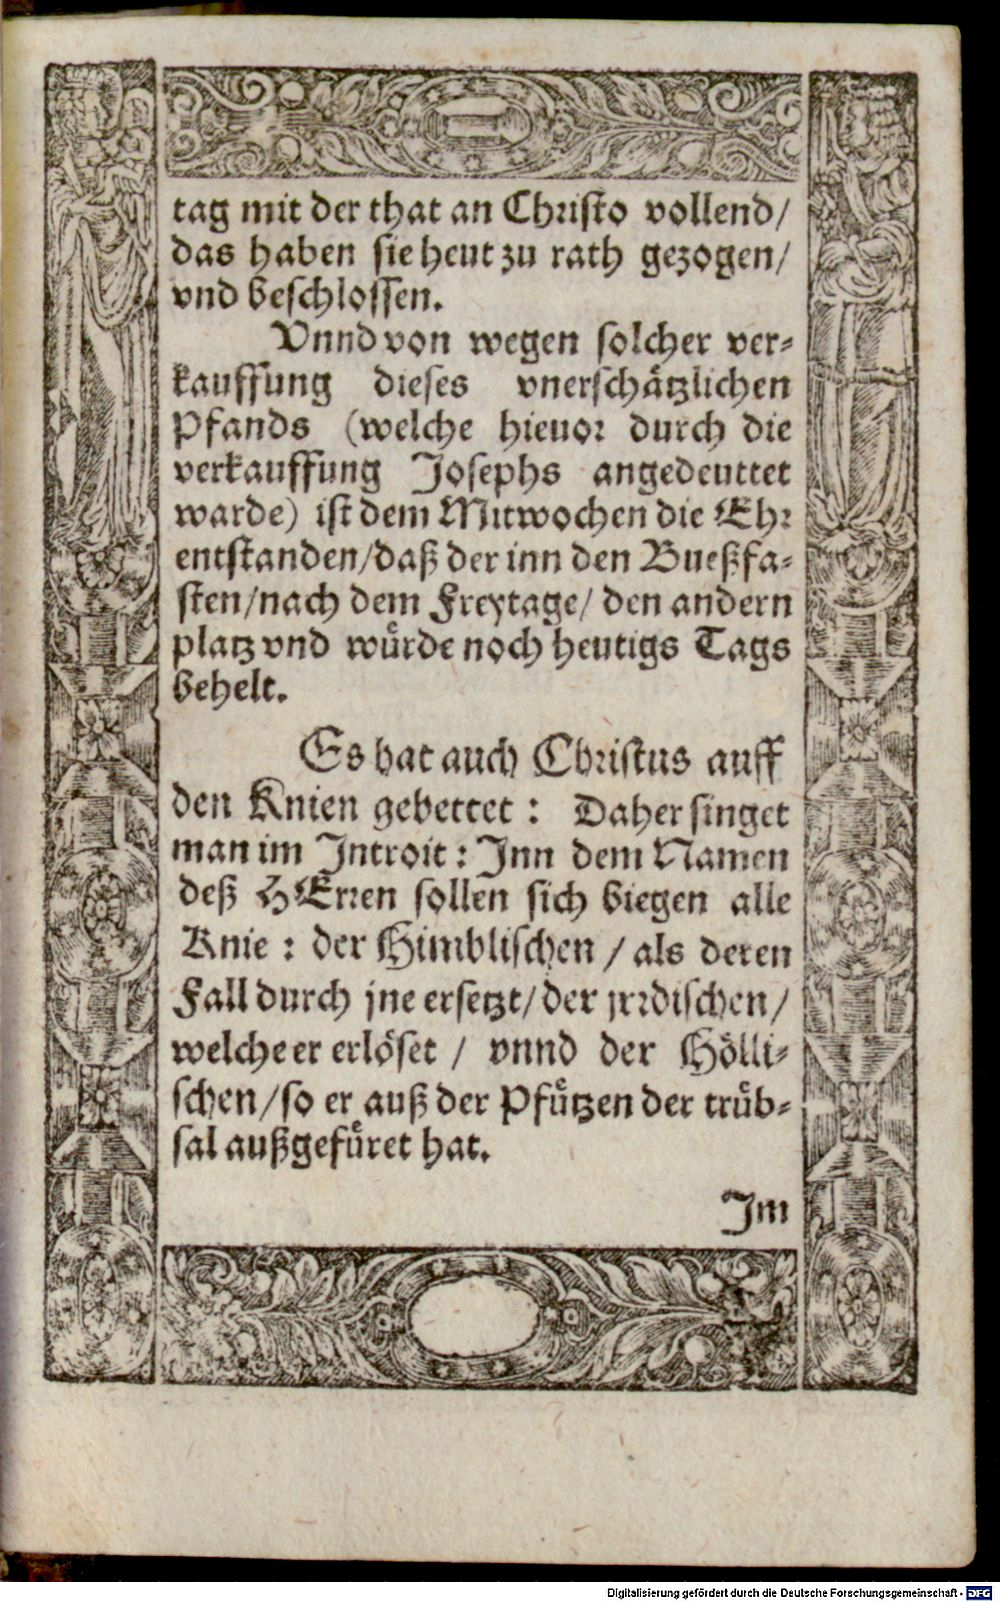 tag mit der that an Christo vollend/
das haben sie heut zu rath gezogen/
vnd beschlossen.
Vnnd von wegen solcher ver-
kauffung dieses vnerschätzlichen
Pfands (welche hieuor durch die
verkauffung Josephs angedeuttet
warde) ist dem Mitwochen die Ehr
entstanden/daß der inn den Bueßfa-
sten/nach dem Freytage/ den andern
platz vnd wuͤrde noch heutigs Tags
behelt.
Es hat auch Christus auff
den Knien gebettet: Daher singet
man im Introit: Inn dem Namen
deß HErren sollen sich biegen alle
Knie: der Himblischen / als deren
Fall durch jne ersetzt/ der jrrdischen/
welche er erlöset / vnnd der Hölli-
schen/so er auß der Pfuͤtzen der truͤb-
sal außgefuͤret hat.
Im
Digitalisierung gefördert durch die Deutsche Forschungsgemeinschaft - DFG